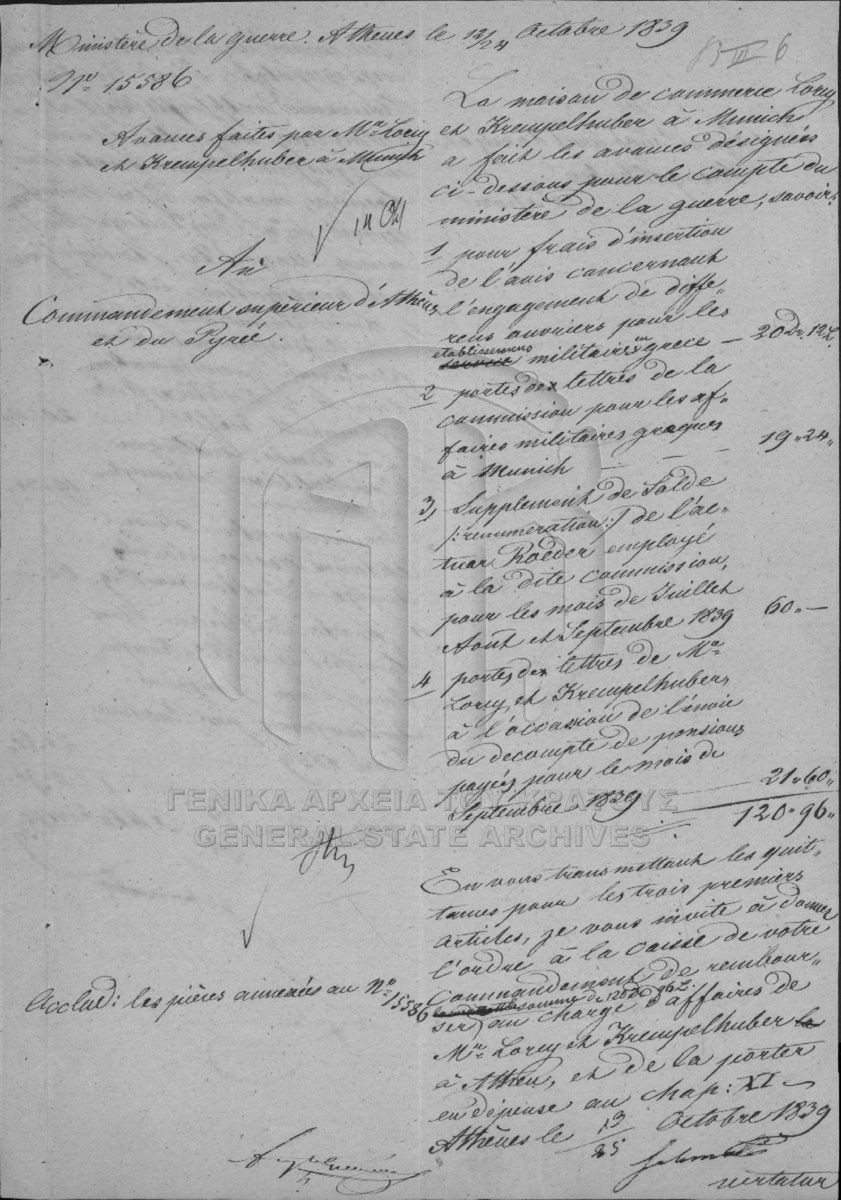 Ministère de la guerre. Athenes le 12/24 Octobre 1839
No 15586
B III 6
Avances faites par Mrs Lorey
et Krempelhuber à Munich
An
Commandement supérieur d'Athènes
et du Pyrée.
La maison de commerce Lorey
et Krempelhuber à Munich
a fait les avances désignées
ci-dessous pour le compte du
ministère de la guerre, savoir:
1 pour frais d'insertion
de l'avis concernant
l'engagement de diffe-
rens ouvriers pour les
etablissemens
militaires en grece — 20 Dr. 12 L.
2 portes de lettres de la
commission pour les af-
faires militaires greques
à Munich — — — 19 " 24 "
3, Supplement de Solde
/: remuneration :/ de l'ac-
tuar Roeder employé
à la dite commission,
pour les mois de Juillet
Août et Septembre 1839 60 " —
4 portes de lettres de Mrs
Lorey et Krempelhuber,
à l'occasion de l'envoie
du decompte de pensions
payées pour le mois de
Septembre 1839 21 " 60 "
120 " 96 "
ΓΕΝΙΚΑ ΑΡΧΕΙΑ ΤΟΥ ΚΡΑΤΟΥΣ
GENERAL STATE ARCHIVES
En vous transmettant les quit-
tances pour les trois premiers
articles, je vous invite à donner
l'ordre à la caisse de votre
Commandement de rembour-
somme de 120 Dr. 96 L.
ser au chargé d'affaires de
Mrs Lorey et Krempelhuber
à Athen, et de la porter
en dépense au chap: XI —
Athènes le 13/25 Octobre 1839
Acclud: les pièces annexées au No 15586
vertatur